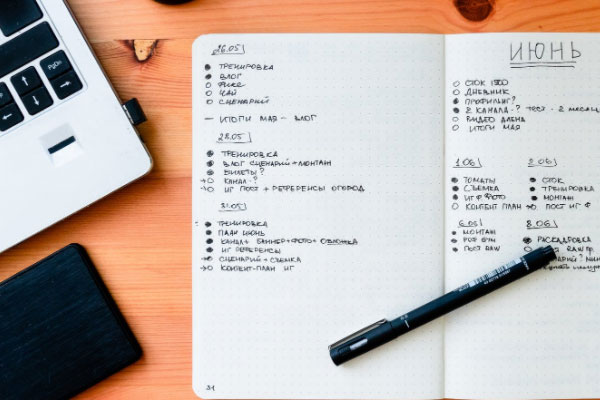 26.05
ТРЕНИРОВКА
ВЛОГ
ЧАЙ
СЦЕНАРИЙ
— ИТОГИ МАЯ — ВЛОГ
28.05
ТРЕНИРОВКА
ВЛОГ СЦЕНАРИЙ+МОНТАЖ
БИЛЕТЫ?
КАНАЛ-?
ИГ ПОСТ + РЕФЕРЕНСЫ ОГОРОД
31.05
ТРЕНИРОВКА
ПЛАН ИЮНЬ
КАНАЛ+ БАННЕР+ФОТО+ ОБЛОЖКА
ИГ РЕФЕРЕНСЫ
СЦЕНАРИЙ+СЪЕМКА
КОНТЕНТ-ПЛАН ИГ
31
ИЮНЬ
СТОК 1500
ДНЕВНИК
ПРОФИЛИНГ?
2 КАНАЛА-? ТЕСТ - 2 МЕСЯЦ
ВИДЕО ДЛЯ
ИТОГИ МАЯ
1.06
ТОМАТЫ
СЪЕМКА
ИГ ФОТО
КОНТЕНТ ПЛАН
2.06
СТОК
ТРЕНИРОВКА
МОНТАЖ
ПОСТ ИГ
6.06
МОНТАЖ
ПОСТ RAW
8.06
РАСКАДРОВКА
RAW